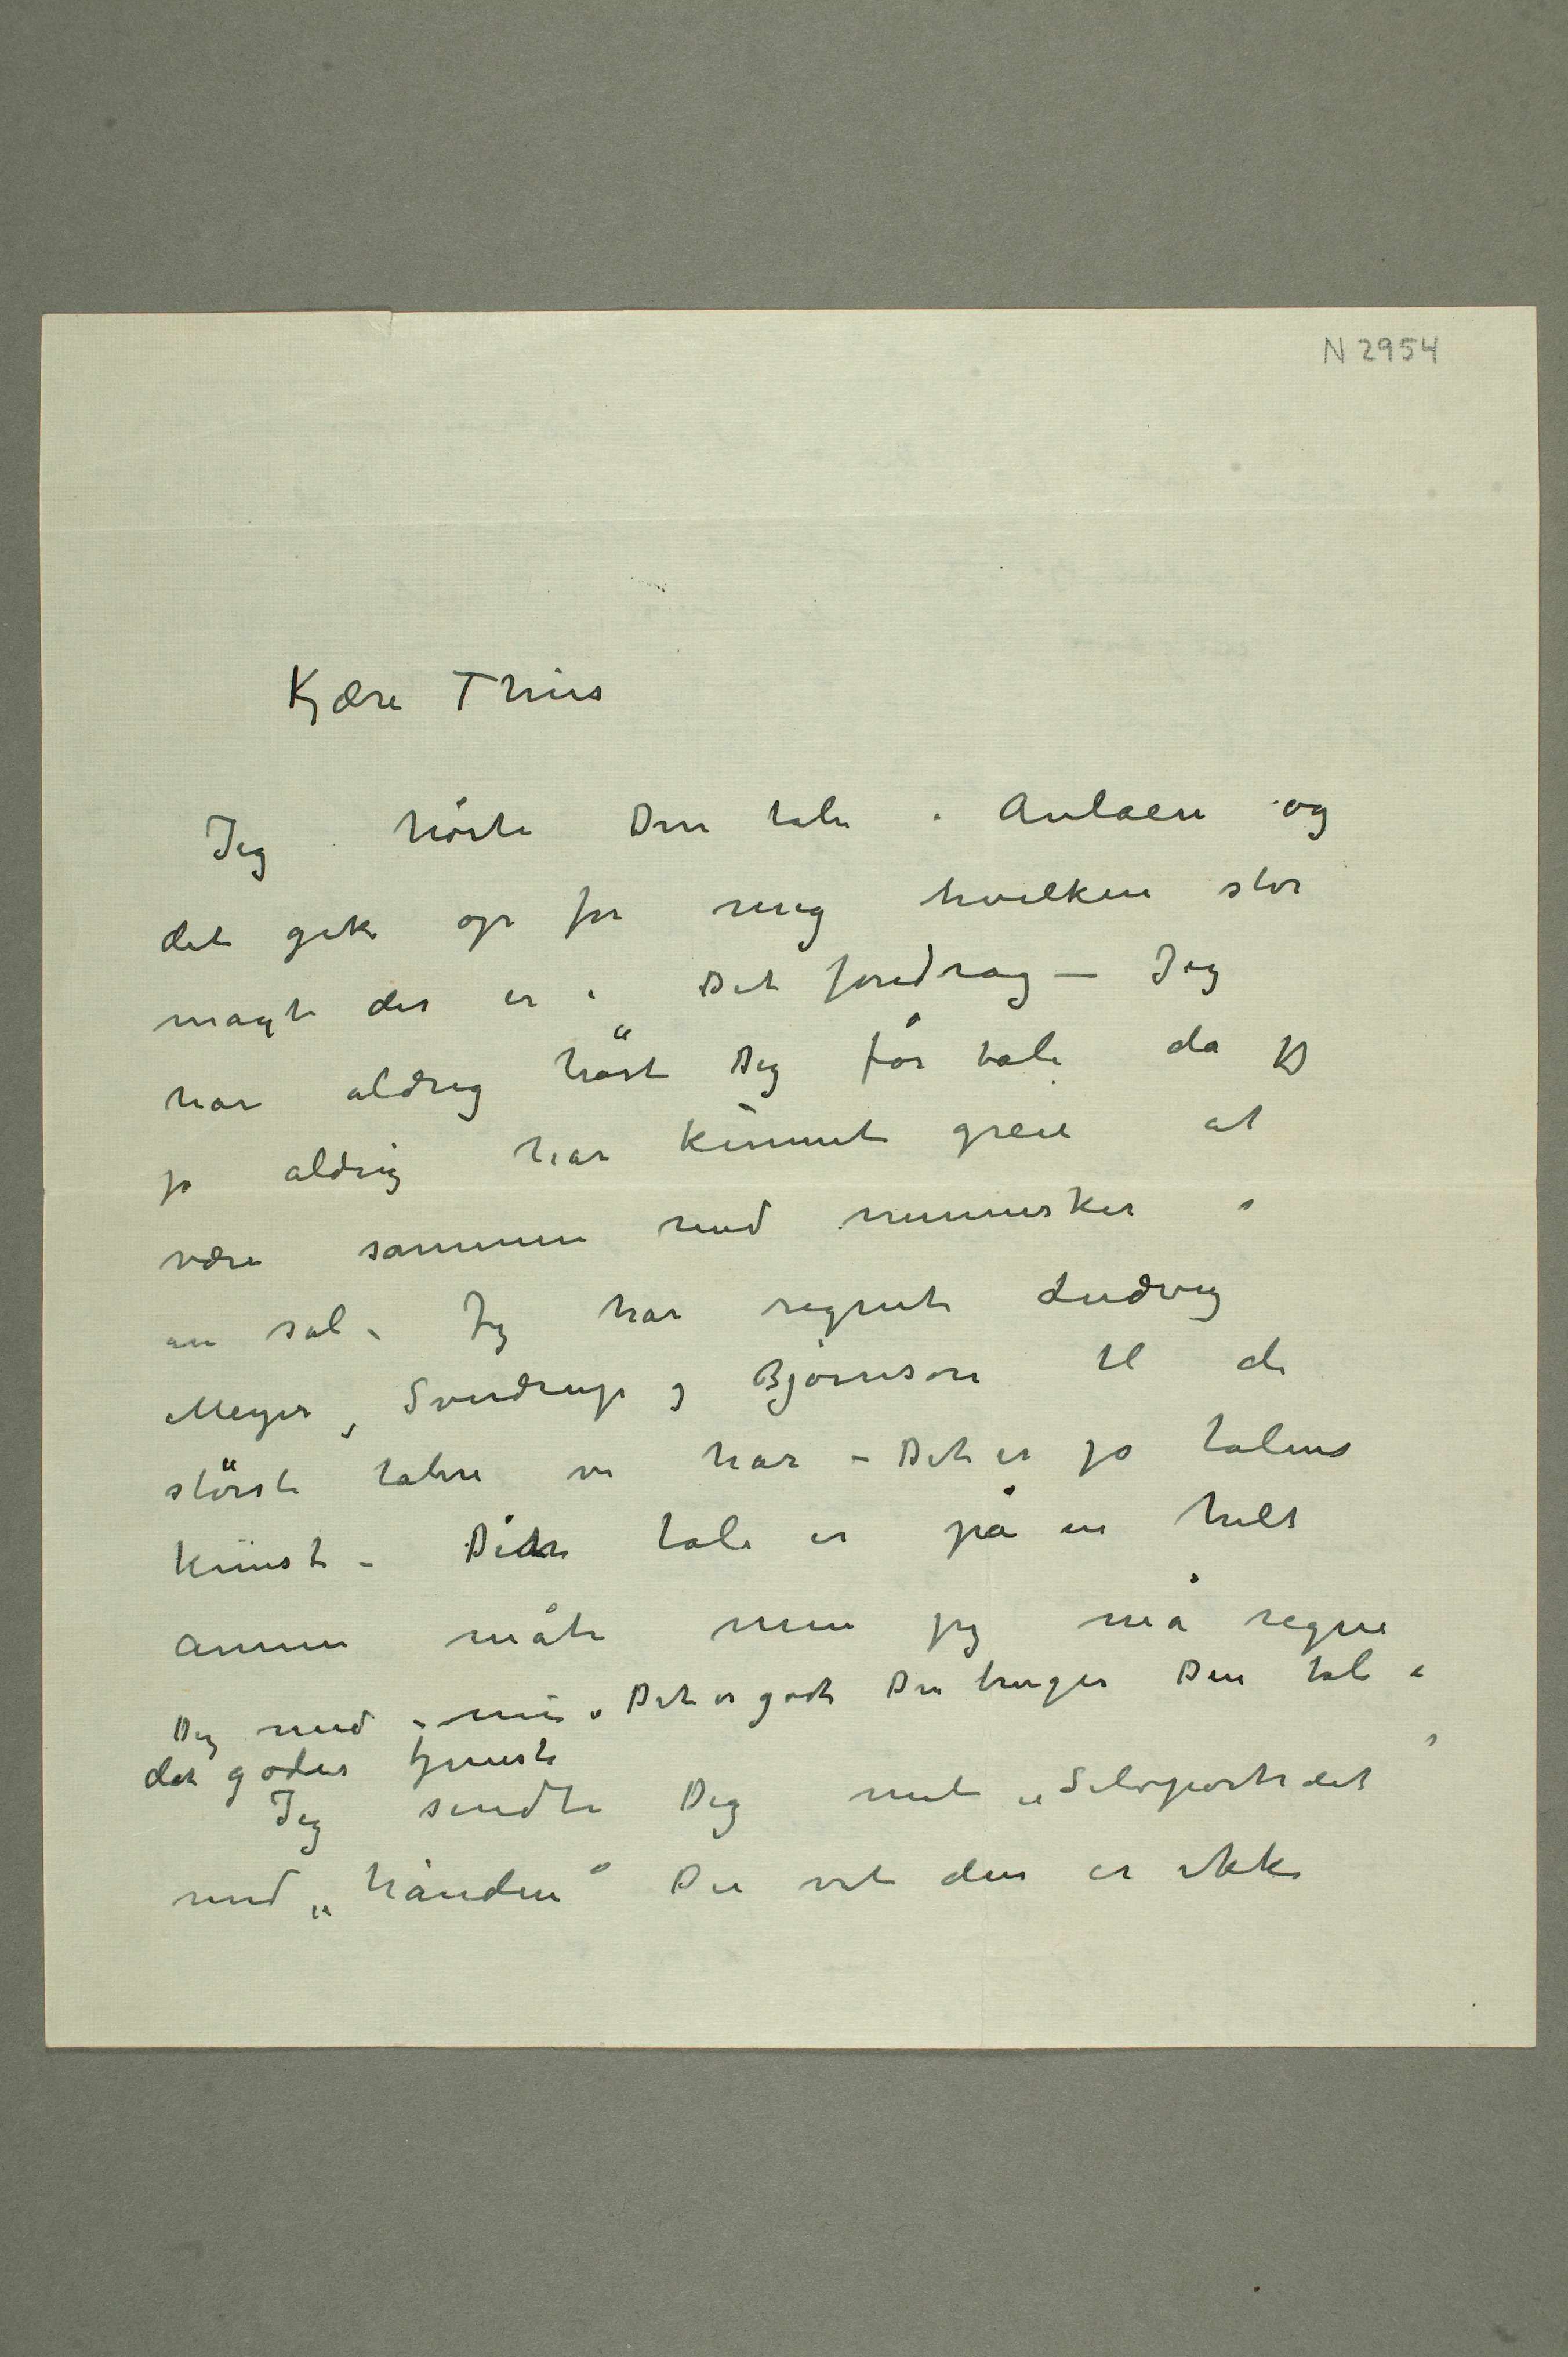 N 2954
Kjære Thiis
Jeg hørte Din tale i Aulaen og
det gik op for mig hvilken stor
magt der er i Dit foredrag – Jeg
har aldrig hört Dig før tale da jeg
jo aldrig har kunnet greie at
være sammen med mennesker i
en sal – Jeg har regnet Ludvig
Meyer, Sverdrup og Bjørnson til de
störste talere vi har – Det er jo talens
kunst – Din tale er på en helt
annen måte men jeg må regne
Dig med – Det er godt Du bruger Din tale i
det godes tjeneste
Jeg sendte Dig mit „Selvportrdet"
med „hånden" Du vet den er ikke